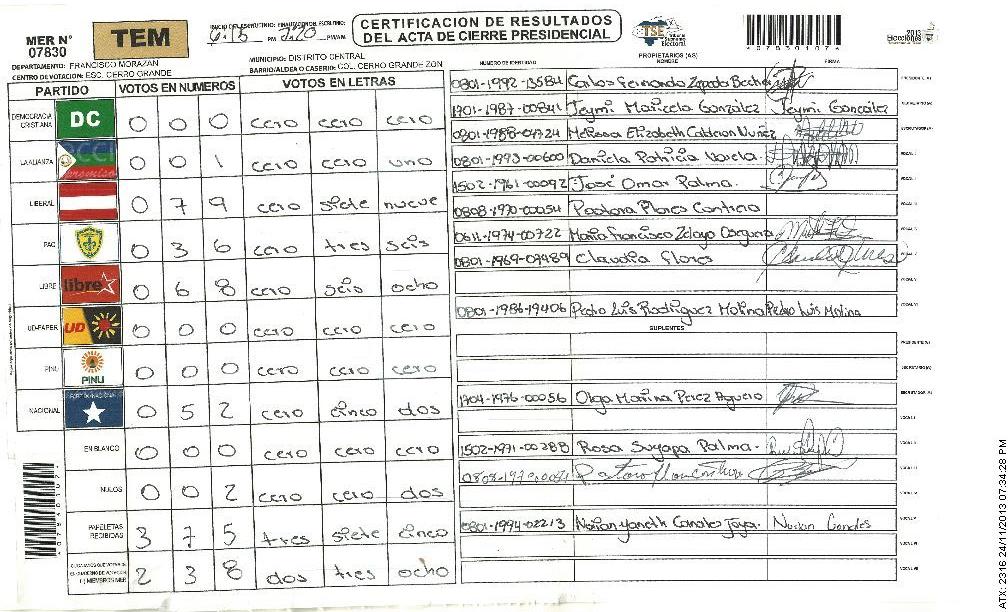 MER N° 07830
TEM
INICIO DEL ESCRUTINIO: FINALIZACION ESCRUTINIO:
PM 7:20 PM/AM.
CERTIFICACION DE RESULTADOS
DEL ACTA DE CIERRE PRESIDENCIAL
TSE Tribunal Supremo Electoral
2013 Elecciones
DEPARTAMENTO: FRANCISCO MORAZAN
MUNICIPIO: DISTRITO CENTRAL
CENTRO DE VOTACION: ESC. CERRO GRANDE
BARRIO/ALDEA O CASERIO: COL. CERRO GRANDE ZON
PARTIDO VOTOS EN NUMEROS VOTOS EN LETRAS
DEMOCRACIA CRISTIANA DC 0 0 0 cero cero cero
LA ALIANZA 0 0 1 cero cero uno
LIBERAL 0 7 9 cero siete nueve
PAC 0 3 6 cero tres seis
LIBRE libre 0 6 8 cero seis ocho
UD-FAPER UD 0 0 0 cero cero cero
PINU PINU 0 0 0 cero cero cero
NACIONAL 0 5 2 cero cinco dos
EN BLANCO 0 0 0 cero cero cero
NULOS 0 0 2 cero cero dos
PAPELETAS RECIBIDAS 3 7 5 tres siete cinco
2 3 8 dos tres ocho
PROPIETARIOS (AS)
NUMERO DE IDENTIDAD NOMBRE FIRMA
0801-1992-13584 Carlos Fernando Zepeda
1701-1987-00841 Jeymi Maricela González Jeymi González
0801-1988-04724 Melissa Elizabeth Calderon Nuñez
0801-1993-00600 Daniela Patricia Varela
1502-1961-00092 José Omar Palma.
0808-1970-00054 Pastora Flores
0611-1974-00722 Mario Francisco Zelaya
0801-1969-09489 Claudia Flores
0801-1986-19406 Pedro Luis Rodriguez Molina Pedro Luis Molina
SUPLENTES
1704-1976-00056 Olga Marina Perez Aguero
1502-1971-00288 Rosa Suyapa Palma.
0801-1994-02213 Yaneth Canales
ATX: 2316 24/11/2013 07:34:28 PM